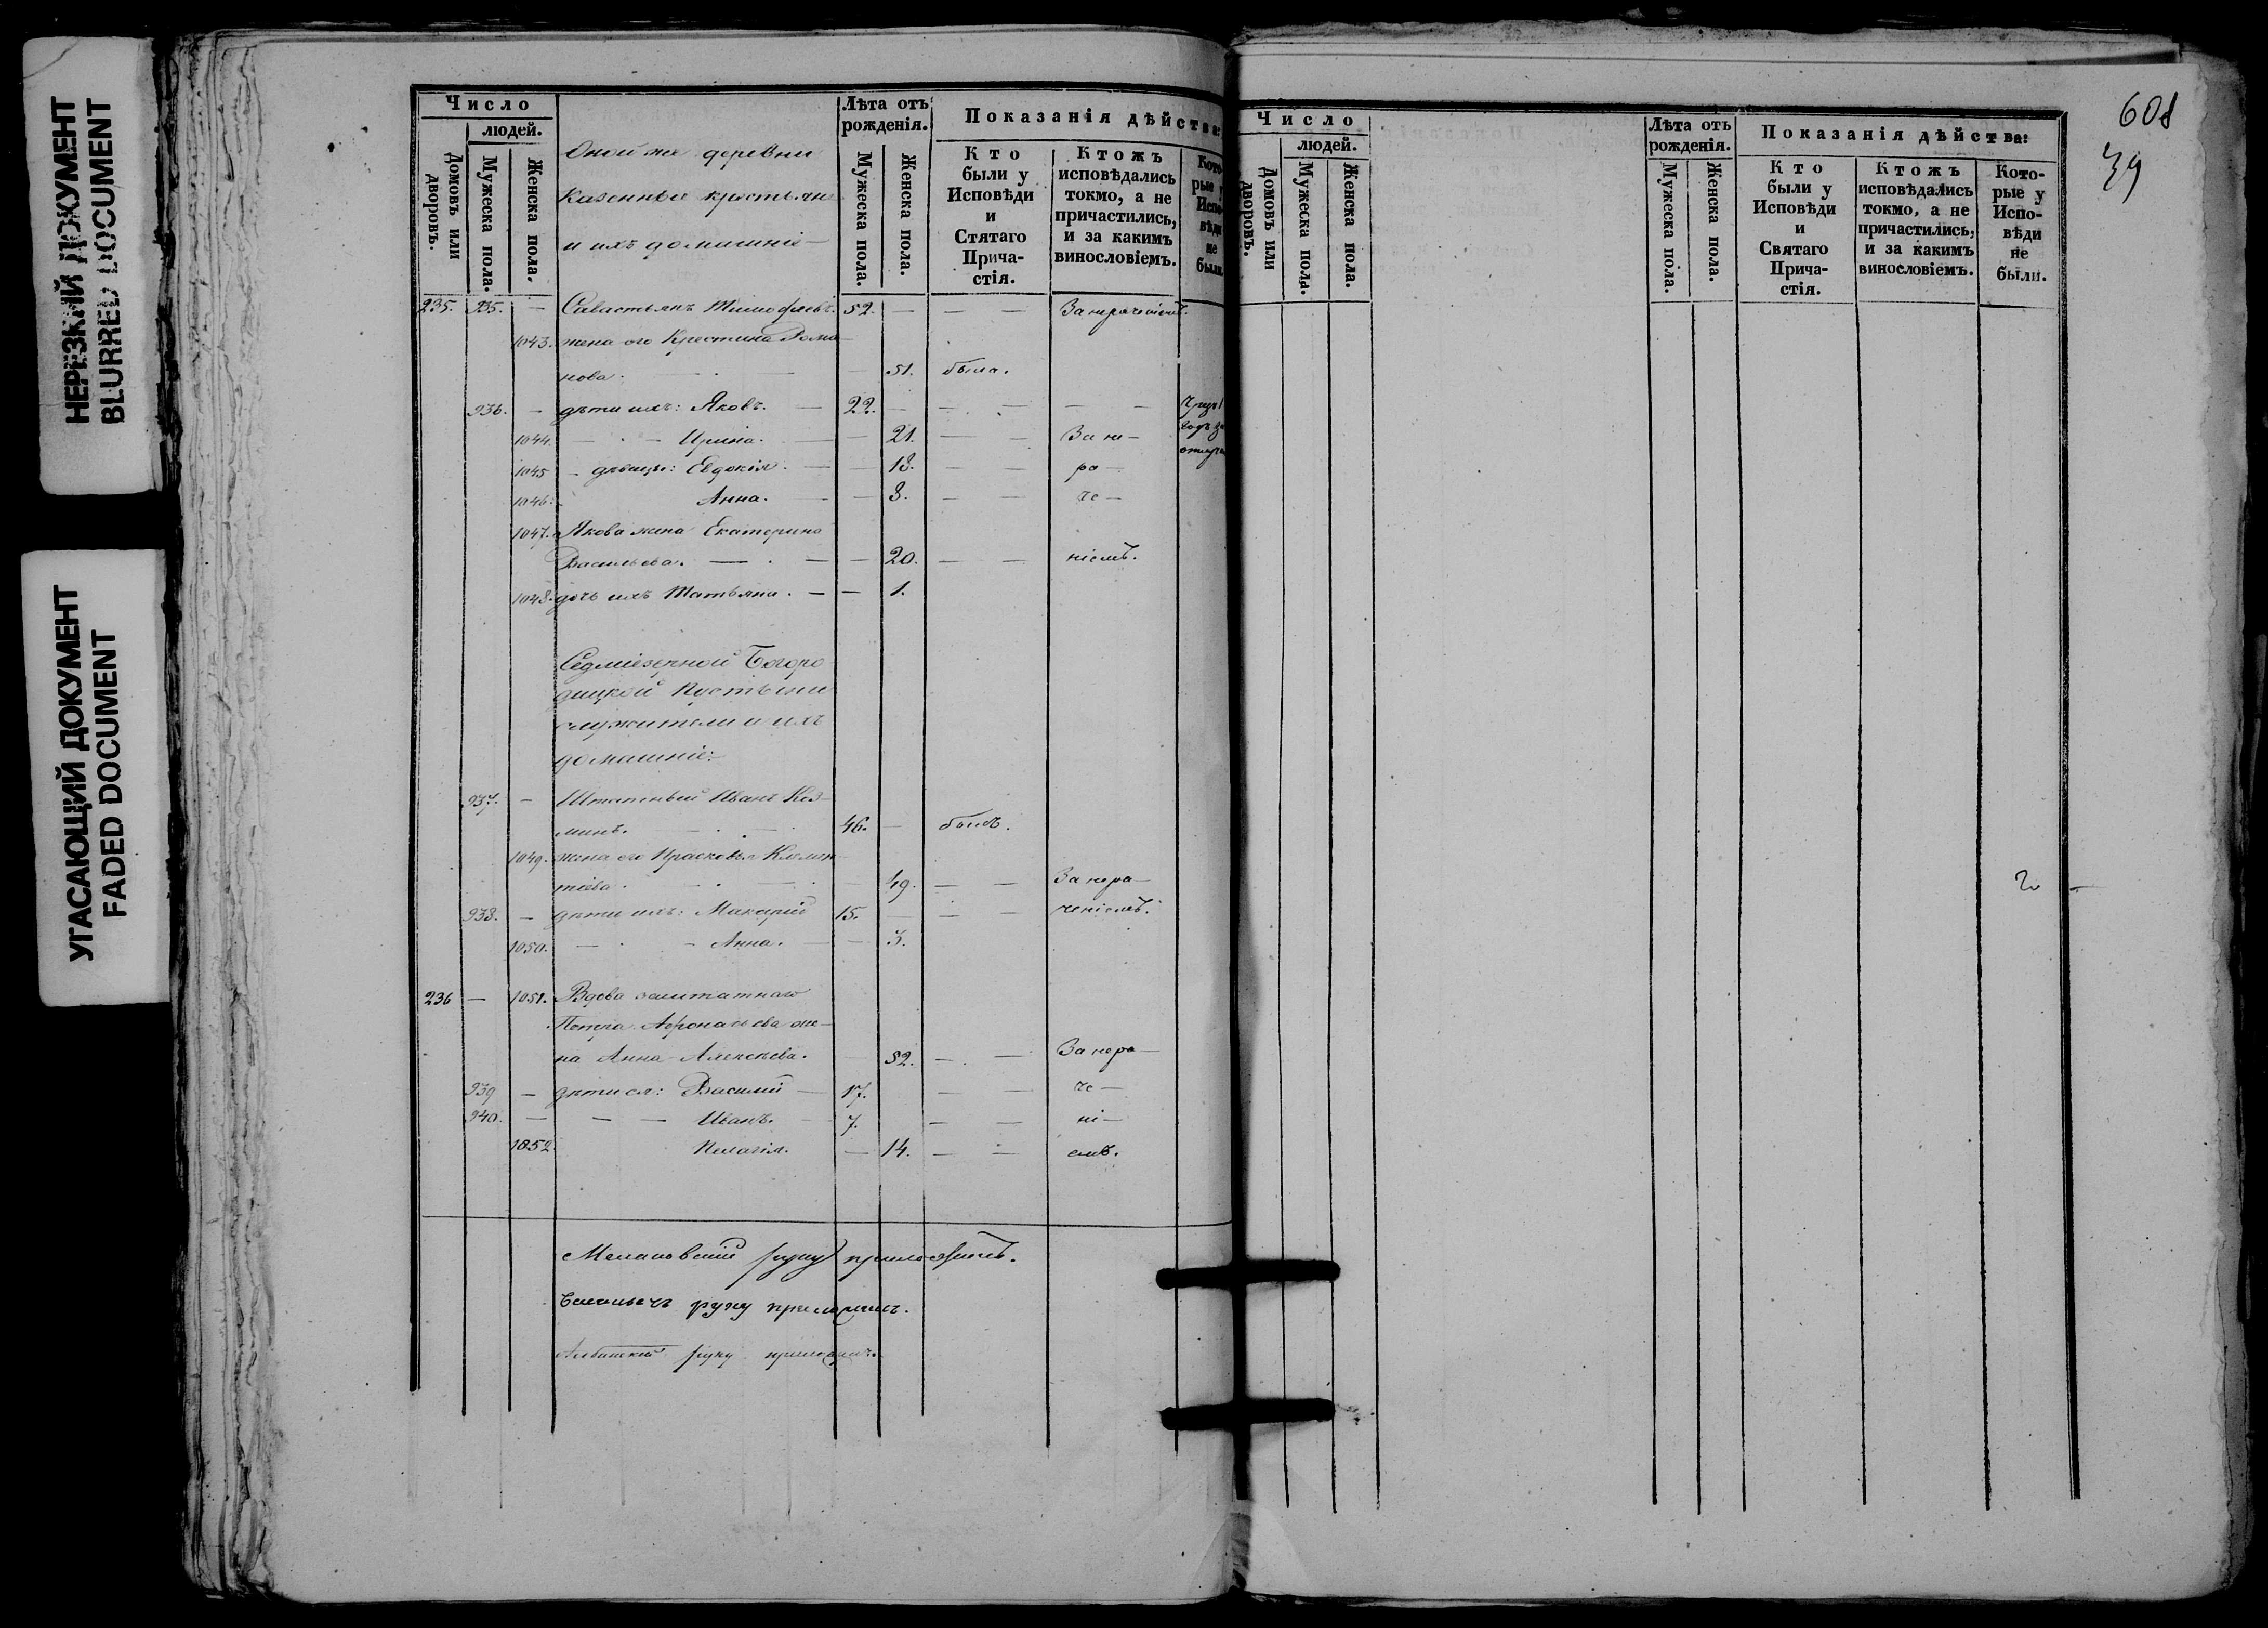 НЕРЕЗКИЙ ДОКУМЕНТ
BLURRED DOCUMENT
УГАСАЮЩИЙ ДОКУМЕНТ
FADED DOCUMENT
Число
людей.
Домовъ или дворовъ.
Мужеска пола.
Женска пола.
Оной же деревни
Казенные крестьяне
и ихъ домашніе
Лѣта отъ рожденія.
Мужеска пола.
Женска пола.
Показанія дѣйства:
Кто были у Исповѣди и Стятаго Прича-стія.
Ктожъ исповѣдались токмо, а не причастились, и за какимъ винословіемъ.
Кото-рые у Испо-вѣди не были.
235. 935. — Савастьянъ Тимофѣевъ. 52. — — — За нераченіемъ.
1043. жена его Крестина Рома
нова. — 51. была.
936. — дѣти ихъ: Яковъ. — 22. — — — — —
1044. — — Ирина. — — 21. — — За не —
1045 — дѣвицы: Евдокія. — — 18. — — ра —
1046. Анна. — — 8. — — че —
1047. Якова жена Екатерина
Васильева. — — — 20. — — ніемъ.
1048. дочь ихъ Татьяна. — — 1.
Седміезерной Богоро
дицкой Пустыни
служители и ихъ
домашніе:
937. — Штатный Иванъ Коз-
минъ. — — 46. — былъ.
1049. жена его Прасковья Клемен
тіева. — — — 49. — — За нера —
938. — дѣти ихъ: Макарій 15. — — — ченіемъ.
1050. — — Анна. — — 3.
236 — 1051. Вдова заштатнаго
Петра Афонасьева же-
на Анна Алексѣева. — 52. — — За нера —
939 — дѣти ея: Василій — 17. — — че —
940. — — — Иванъ. — 7. — — ні —
1052 Пелагія. — 14. — — емъ.
руку приложилъ.
руку приложилъ.
руку приложилъ.
Число
людей.
Домовъ или дворовъ.
Мужеска пола.
Женска пола.
Лѣта отъ рожденія.
Мужеска пола.
Женска пола.
Показанія дѣйства:
Кто были у Исповѣди и Святаго Прича-стія.
Ктожъ исповѣдались токмо, а не причастились, и за какимъ винословіемъ.
Кото-рые у Испо-вѣди не были.
608
39